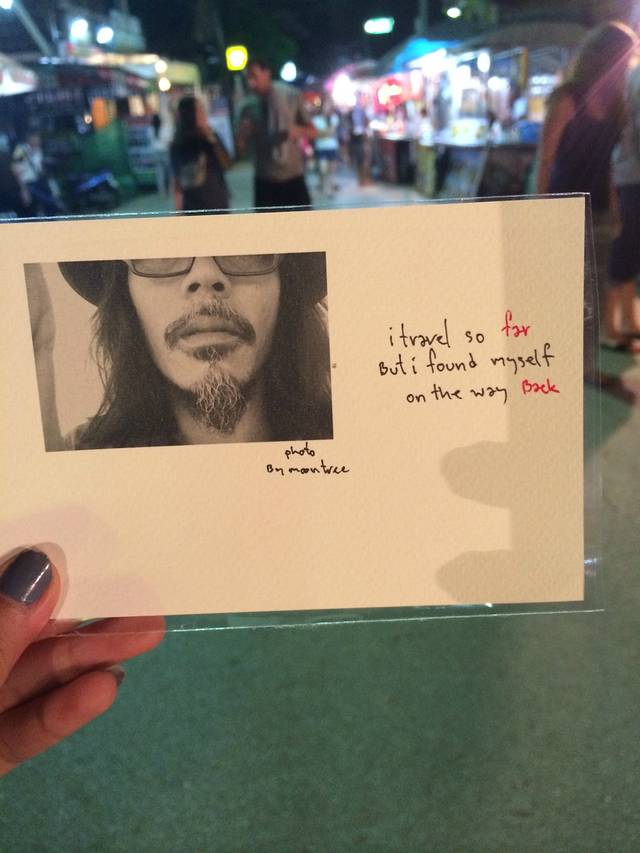 i travel so far
But i found myself
on the way Back
photo
By moontree